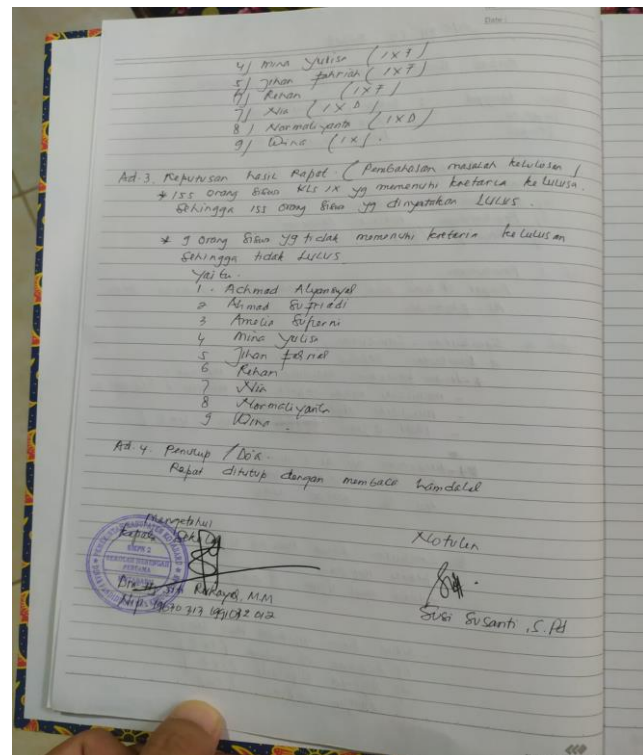 Date :
4) Mina Yulisa (IX F)
5) Jihan Fahriah (IX F)
6) Rehan (IX F)
7) Nia (IX D)
8) Normaliyanta (IX D)
9) Wina (IX).
Ad. 3. Keputusan hasil Rapat. (Pembahasan masalah kelulusan)
* 155 orang siswa KLS IX yg memenuhi kretaria kelulusa.
Sehingga 155 orang siswa yg dinyatakan LULUS.
* 9 orang siswa yg tidak memenuhi kreteria kelulusan
Sehingga tidak LULUS
yaitu.
1. Achmad
2 Ahmad Supriadi
3 Amelia
4 Mina Yulisa
5 Jihan
6 Rehan
7 Nia
8 Normaliyanta
9 Wina.
Ad. 4. Penutup / Do'a
Rapat ditutup dengan membaca hamdalah
Mengetahui
Kepala
SMPN 2
SEKOLAH MENENGAH
PERTAMA
Rukayah, MM
Notulen
Susi Susanti, S.Pd